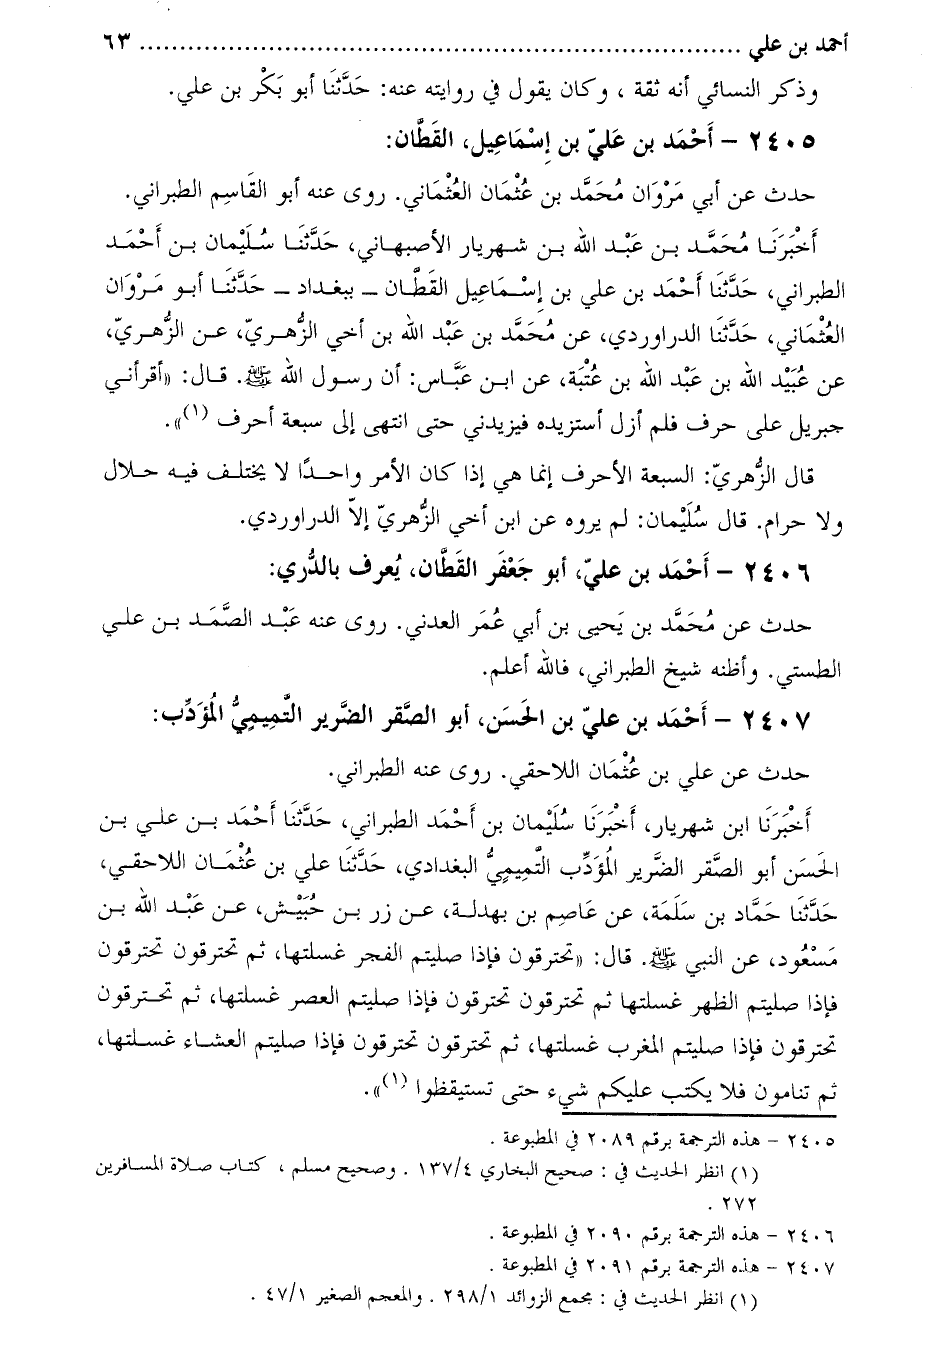 أحمد بن علي ........................................................................... ٦٣
وذكر النسائي أنه ثقة ، وكان يقول في روايته عنه: حَدَّثَنَا أبو بَكْر بن علي.
٢٤٠٥ – أَحْمَد بن عَليّ بن إِسْمَاعِيل، القَطَّان:
حدث عن أبي مَرْوَان مُحَمَّد بن عُثْمَان العُثْمَاني. روى عنه أبو القَاسِم الطبراني.
أَخْبَرَنَا مُحَمَّد بن عَبْد الله بن شهريار الأصبهاني، حَدَّثَنَا سُلَيْمان بن أَحْمَد
الطبراني، حَدَّثَنَا أَحْمَد بن علي بن إِسْمَاعيل القَطَّان – ببغداد – حَدَّثَنَا أبو مَرْوَان
العُثْمَاني، حَدَّثَنَا الدراوردي، عن مُحَمَّد بن عَبْد الله بن أخي الزُّهريّ، عن الزُّهريّ،
عن عُبَيْد الله بن عَبْد الله بن عُتْبَة، عن ابن عَبَّاس: أن رسول الله ﷺ. قال: «أقرأني
جبريل على حرف فلم أزل أستزيده فيزيدني حتى انتهى إلى سبعة أحرف (١)».
قال الزُّهريّ: السبعة الأحرف إنما هي إذا كان الأمر واحدًا لا يختلف فيه حلال
ولا حرام. قال سُلَيْمان: لم يروه عن ابن أخي الزُّهريّ إلاّ الدراوردي.
٢٤٠٦ – أَحْمَد بن عليّ، أبو جَعْفَر القَطَّان، يُعرف بالدُّري:
حدث عن مُحَمَّد بن يَحيى بن أبي عُمَر العدني. روى عنه عَبْد الصَّمَد بن علي
الطستي. وأظنه شيخ الطبراني، فالله أعلم.
٢٤٠٧ – أَحْمَد بن عليّ بن الحَسَن، أبو الصَّقر الضَّرير التَّمِيمِيُّ المُؤَدِّب:
حدث عن علي بن عُثْمَان اللاحقي. روى عنه الطبراني.
أَخْبَرَنَا ابن شهريار، أَخْبَرَنَا سُلَيْمان بن أَحْمَد الطبراني، حَدَّثَنَا أَحْمَد بن علي بن
الحَسَن أبو الصَّقر الضَّرير المُؤَدِّب التَّمِيمِيُّ البغدادي، حَدَّثَنَا علي بن عُثْمَان اللاحقي،
حَدَّثَنَا حَمَّاد بن سَلَمَة، عن عَاصِم بن بهدلة، عن زر بن حُبَيْش، عن عَبْد الله بن
مَسْعُود، عن النبي ﷺ. قال: «تحترقون فإذا صليتم الفجر غسلتها، ثم تحترقون تحترقون
فإذا صليتم الظهر غسلتها ثم تحترقون تحترقون فإذا صليتم العصر غسلتها، ثم تحترقون
تحترقون فإذا صليتم المغرب غسلتها، ثم تحترقون تحترقون فإذا صليتم العشاء غسلتها،
ثم تنامون فلا يكتب عليكم شيء حتى تستيقظوا (١)».
٢٤٠٥ – هذه الترجمة برقم ٢٠٨٩ في المطبوعة .
(١) انظر الحديث في : صحيح البخاري ١٣٧/٤ . وصحيح مسلم ، كتاب صلاة المسافرين
٢٧٢ .
٢٤٠٦ – هذه الترجمة برقم ٢٠٩٠ في المطبوعة .
٢٤٠٧ – هذه الترجمة برقم ٢٠٩١ في المطبوعة .
(١) انظر الحديث في : مجمع الزوائد ٢٩٨/١ . والمعجم الصغير ٤٧/١ .